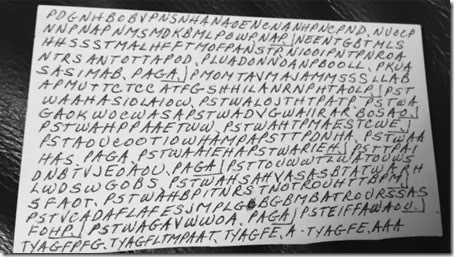 PDGNHBOBVPNSNHANAOENCNANHPNCPND, NUOCP
NNPNAPNMSMDKBMLPOWPNAP, NEENTGBTMLS
HHSSSTMALHFFTMOFPANSTPNIOOIPNTPNROA
NTRSANTOTTAPOD, PLUADONNOANPBOOLL, PKUA
SASIMAB, PAGA.] PMOMTAVMAJAMMSSSSLLAB
APMUTTCTCC ATFGSHHILANRNPHTAOLP.[PST
WAAHASIOLAIOW, PSTWALOJTHTPATP, PSTWA
GAOKWOCWASAPSTWADVGWAIIRARBOSAO,]
PSTWAHPPAAETWW, PSTWAHTPMAESTCWE,
PSTAOUCOOTIOWHAMPAPSTTPDNHA, PSTWAA
HAS, PAGA, PSTWAAIEHAPSTWARIEH.] PSTTPAI
DNBTVJEOAOU, PAGA.] PSTTOUWWTLWATOUWS
LWDSWGOBS, PSTWAHSAHVASASBTATW, PRH
SFAOT, PSTWAHBPITNRSTNOTROUHTTBPM]
PSTVCADAFLAFESJMPLGBBGBMBATROURSSAS
FOHP.] PSTWAGAVWWOA, PAGA] PSTEIFFAWAOU.
TYAGFPFG, TYAGFLTMPAAT, TYAGFE, A. TYAGFE, AAA